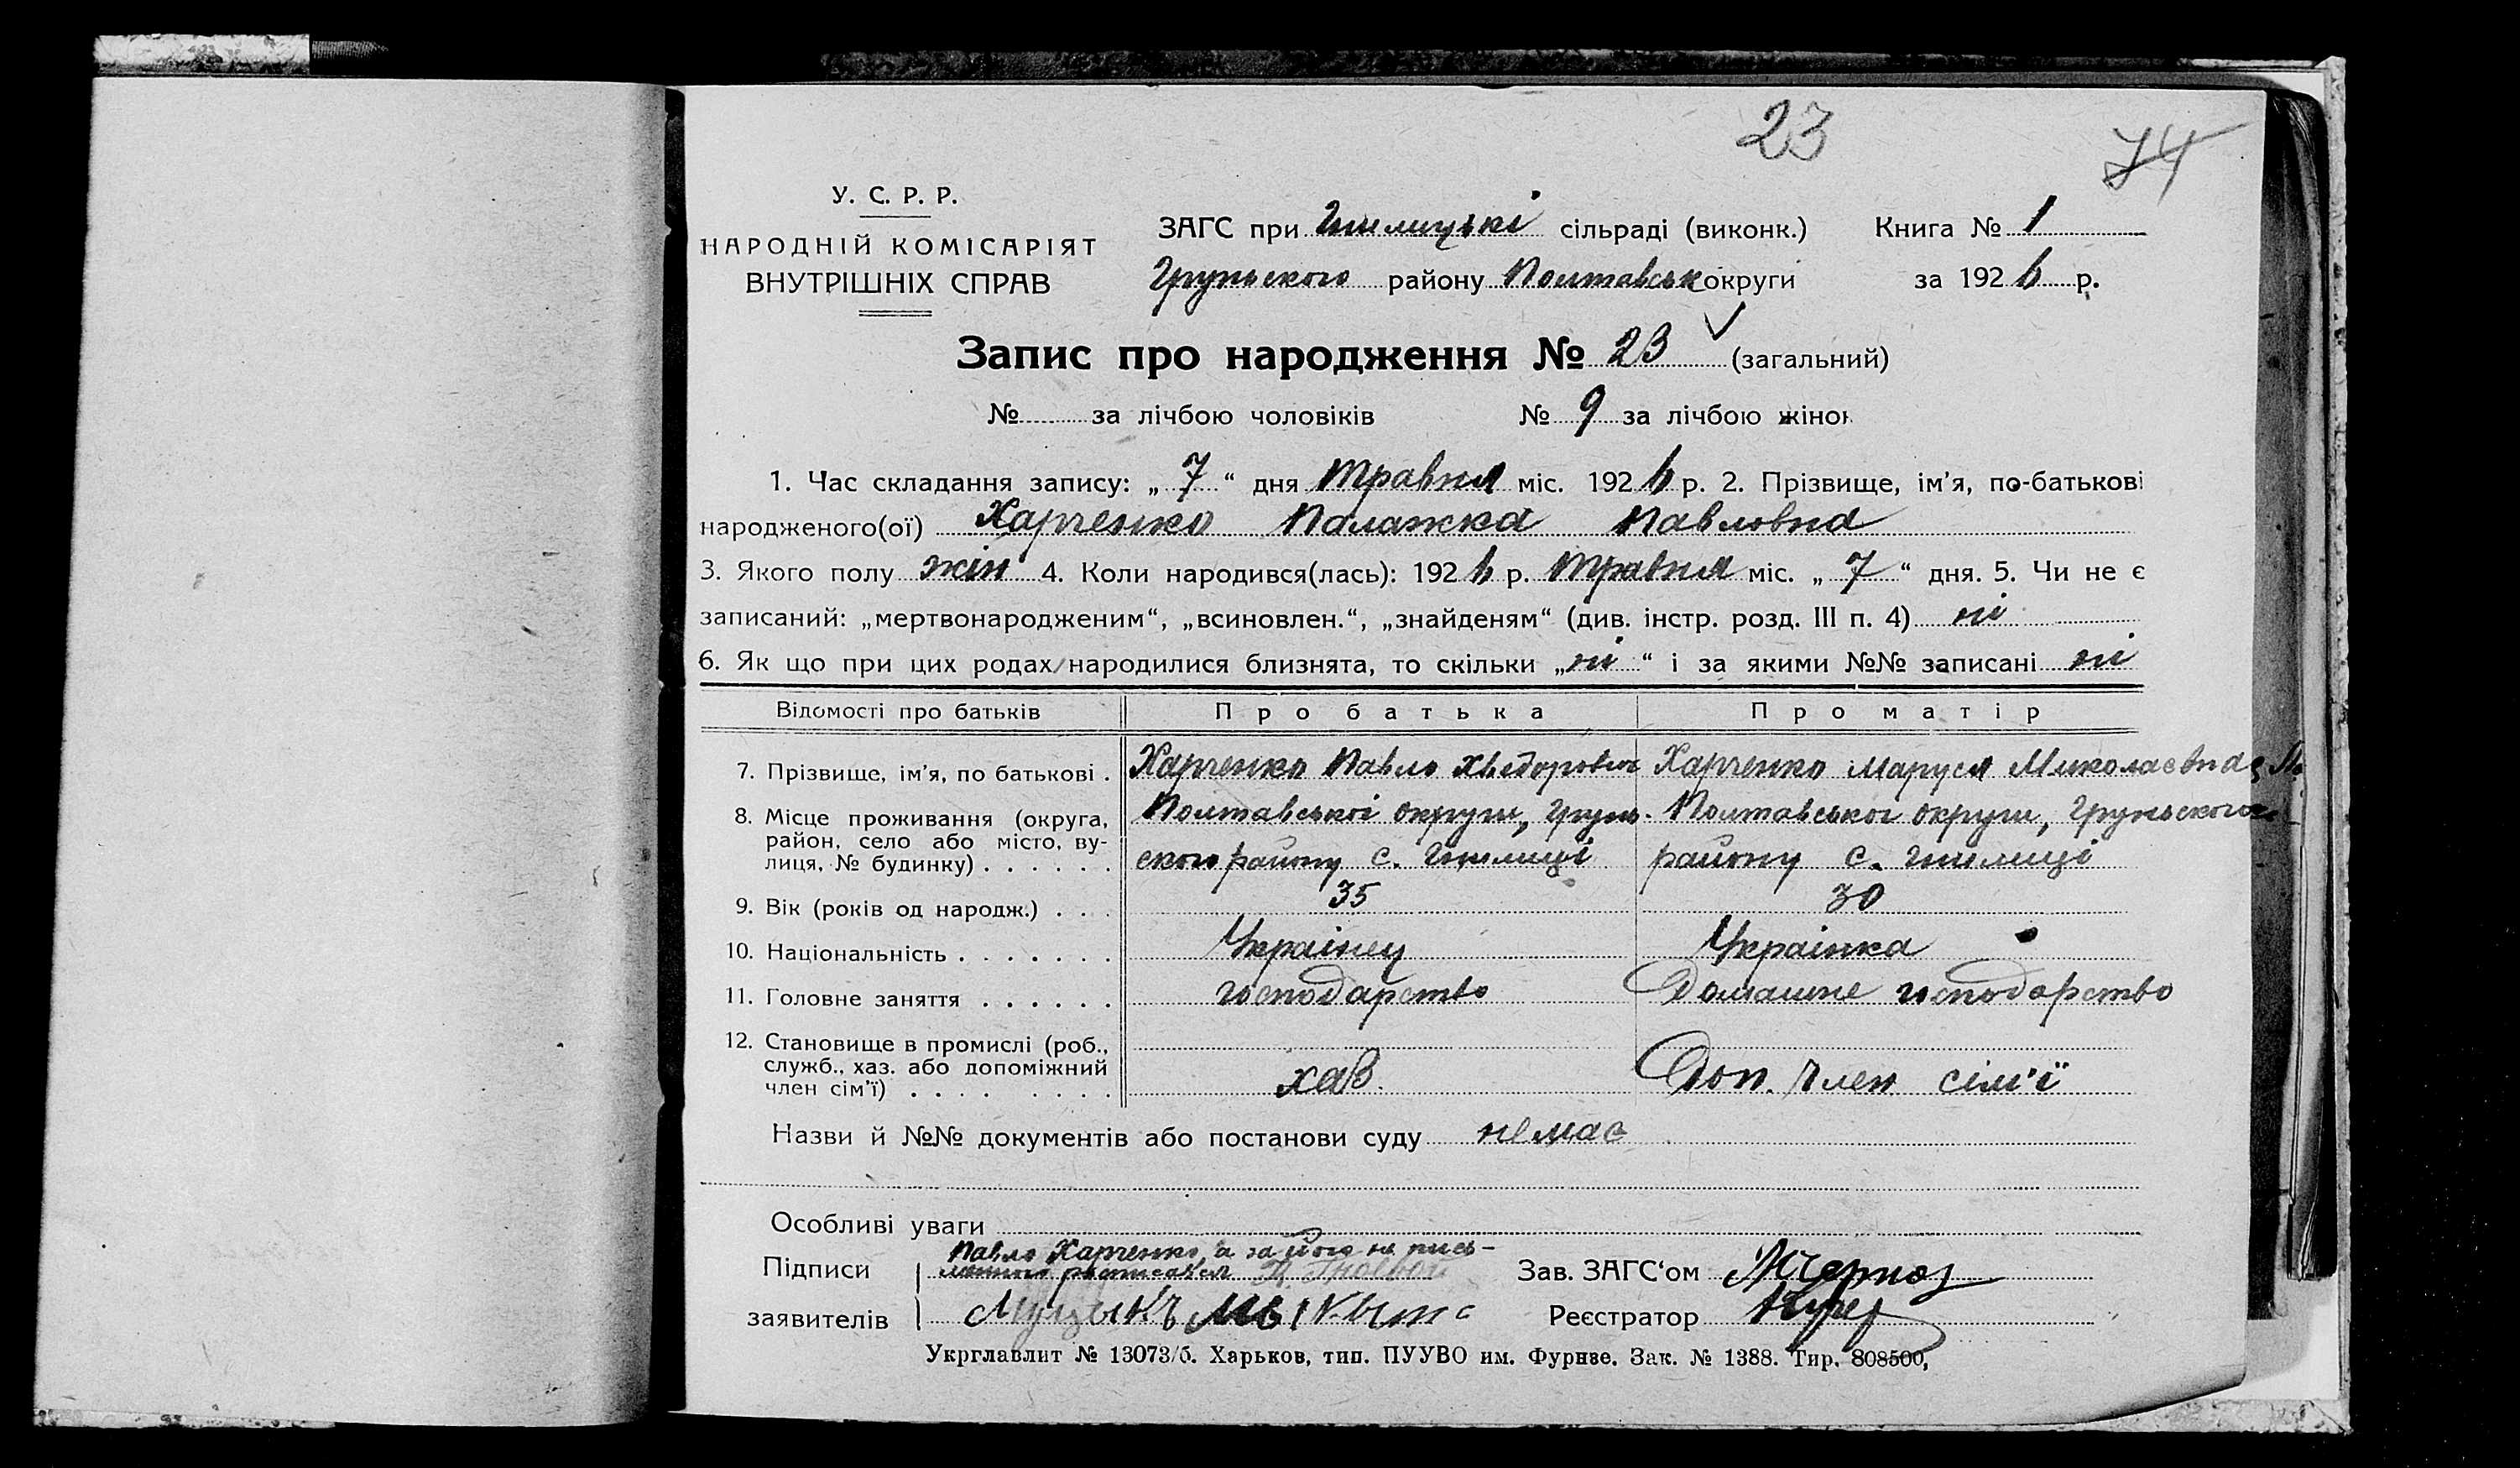 23
74
У. С. Р. Р.
НАРОДНІЙ КОМІСАРІЯТ
ВНУТРІШНІХ СПРАВ
ЗАГС при Гнилицькі сільраді (виконк.) Книга № 1
Груньского району Полтавськ округи за 1926 р.
Запис про народження № 23 (загальний)
№ за лічбою чоловіків № 9 за лічбою жінок
1. Час складання запису: „ 7 “ дня Травня міс. 1926 р. 2. Прізвище, ім'я, по-батькові
народженого(ої) Харченко Палажка Павловна
3. Якого полу жін 4. Коли народився(лась): 1926 р. Травня міс. „ 7 “ дня. 5. Чи не є
записаний: „мертвонародженим“, „всиновлен.“, „знайденям“ (див. інстр. розд. III п. 4) ні
6. Як що при цих родах народилися близнята, то скільки „ ні “ і за якими №№ записані ні
Відомості про батьків Про батька Про матір
7. Прізвище, ім'я, по батькові . Харченко Павло Хведорович Харченко Маруся Миколаєвна
8. Місце проживання (округа, район, село або місто, вулиця, № будинку) . . . . . . Полтавської округи, Грунь-
ского району с. Гнилиці
Полтавської округи, Груньского
району с. Гнилиці
9. Вік (років од народж.) . . . 35 30
10. Національність . . . . . . . Українец Українка
11. Головне заняття . . . . . . господарство Домашне господарство
12. Становище в промислі (роб., служб., хаз. або допоміжний член сім'ї) . . . . . . . . хаз. Доп. член сім'ї
Назви й №№ документів або постанови суду немає
Особливі уваги
Підписи Павло Харченко, а за його не пись-
менного росписався
Зав. ЗАГС‘ом
заявителів
Реєстратор
Укрглавлит № 13073/б. Харьков, тип. ПУУВО им. Фрунзе. Зак. № 1388. Тир. 808500,